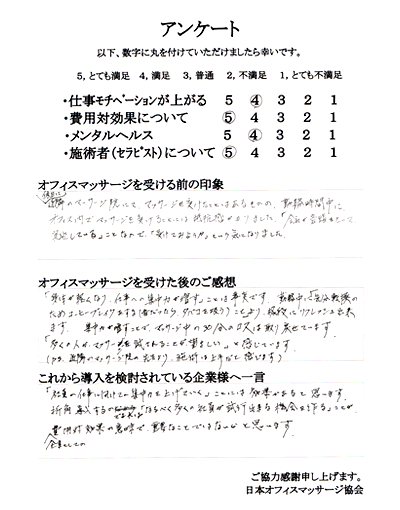 アンケート
以下、数字に丸を付けていただけましたら幸いです。
5, とても満足 4, 満足 3, 普通 2, 不満足 1, とても不満足
・仕事モチベーションが上がる 5 4 3 2 1
・費用対効果について 5 4 3 2 1
・メンタルヘルス 5 4 3 2 1
・施術者(セラピスト)について 5 4 3 2 1
オフィスマッサージを受ける前の印象
のマッサージ院にて マッサージを受けたことはあるものの、勤務時間中に
オフィス内でマッサージを受けるということに抵抗感がありました。「会社が
」ことなので、「受けてみようか」という気になりました。
オフィスマッサージを受けた後のご感想
「身体が軽くなり、仕事への集中力が増す」ことは事実です。「気分転換の
ために ことより、リフレッシュ出来
ます。 集中力が増すことで、マッサージ中の30分のロスは取り戻せています。
「多くの人がマッサージを試されることが望ましい」と感じています。
施術は上手だと感じます)
これから導入を検討されている企業様へ一言
「社員の仕事に向けての集中力を上げていく」ことには効果があると思います。
折角 「なるべく多くの社員が試行出来る機会を作る」ことが、
費用対効果の意味で、重要なことではないかと思います。
企業としての
ご協力感謝申し上げます。
日本オフィスマッサージ協会